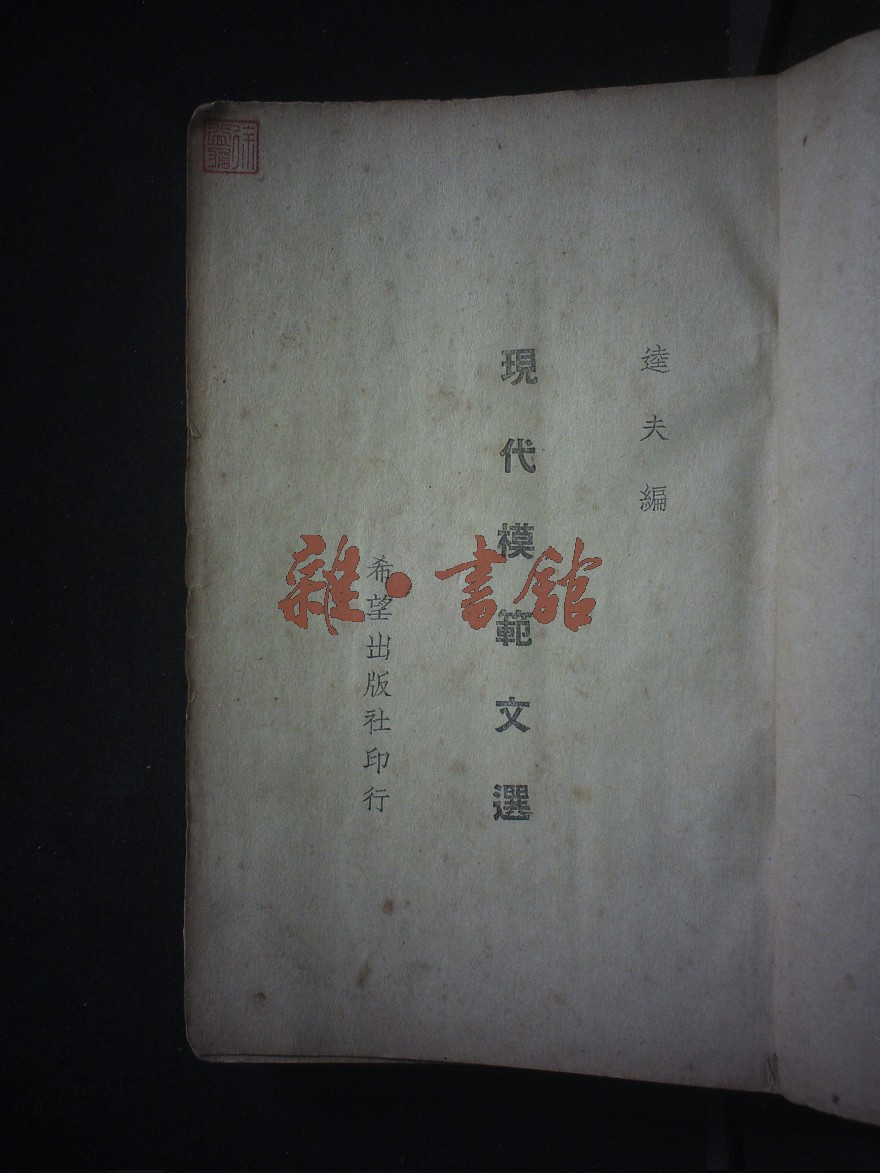 逵夫編
現代模範文選
希望出版社印行
雜·書館